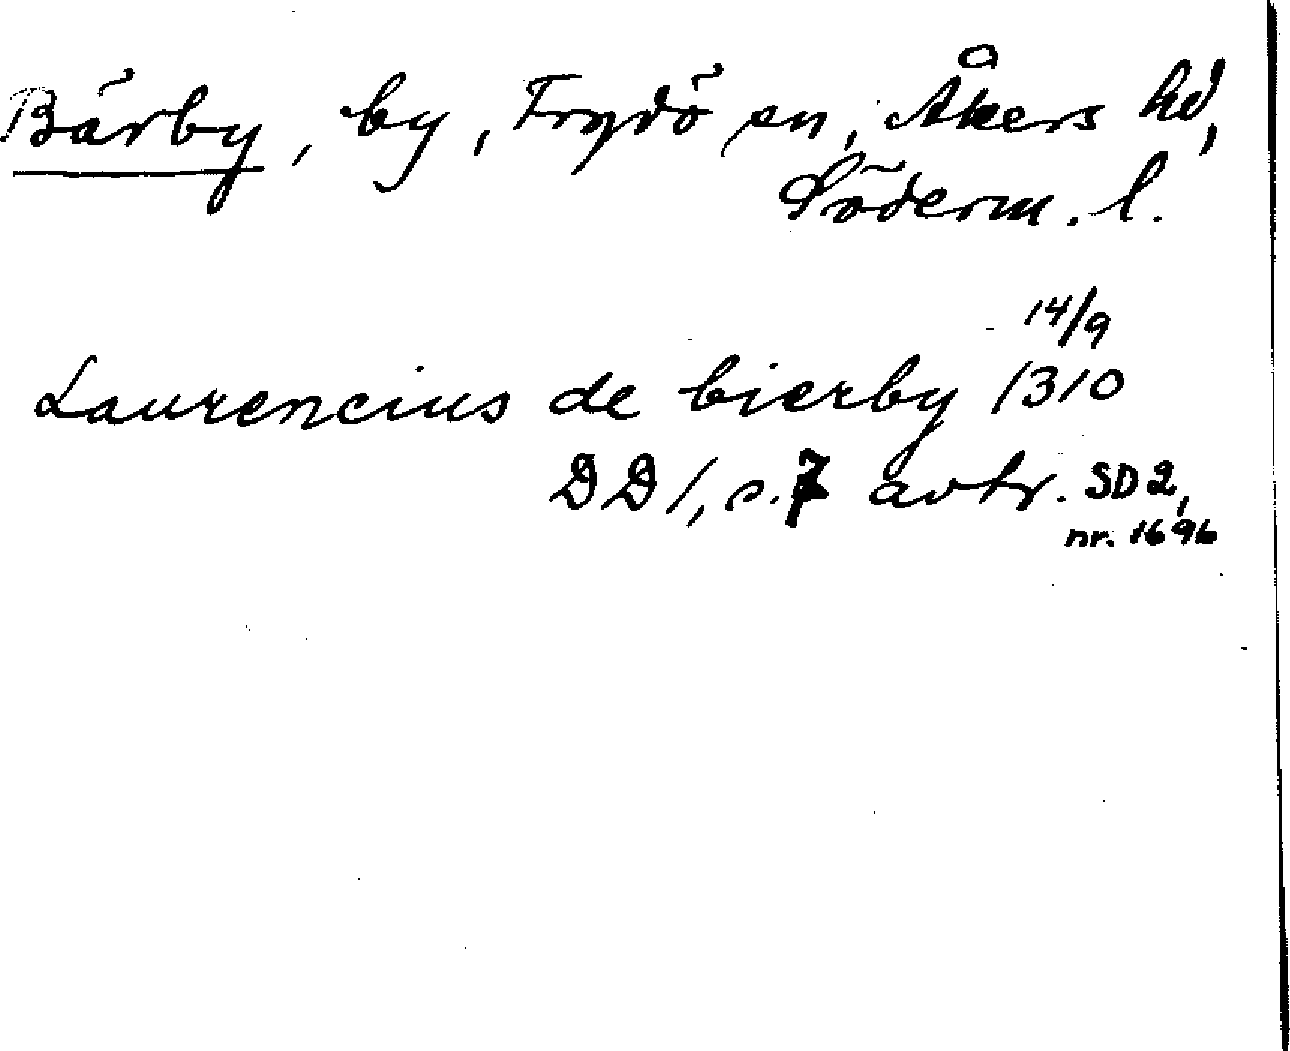 Bärby, by, Frydö sn, Åkers hd,
Söderm. l.
14/9
Laurencius de bierby 1310
DD1, s. 7 avtr. SD2,
nr. 1696